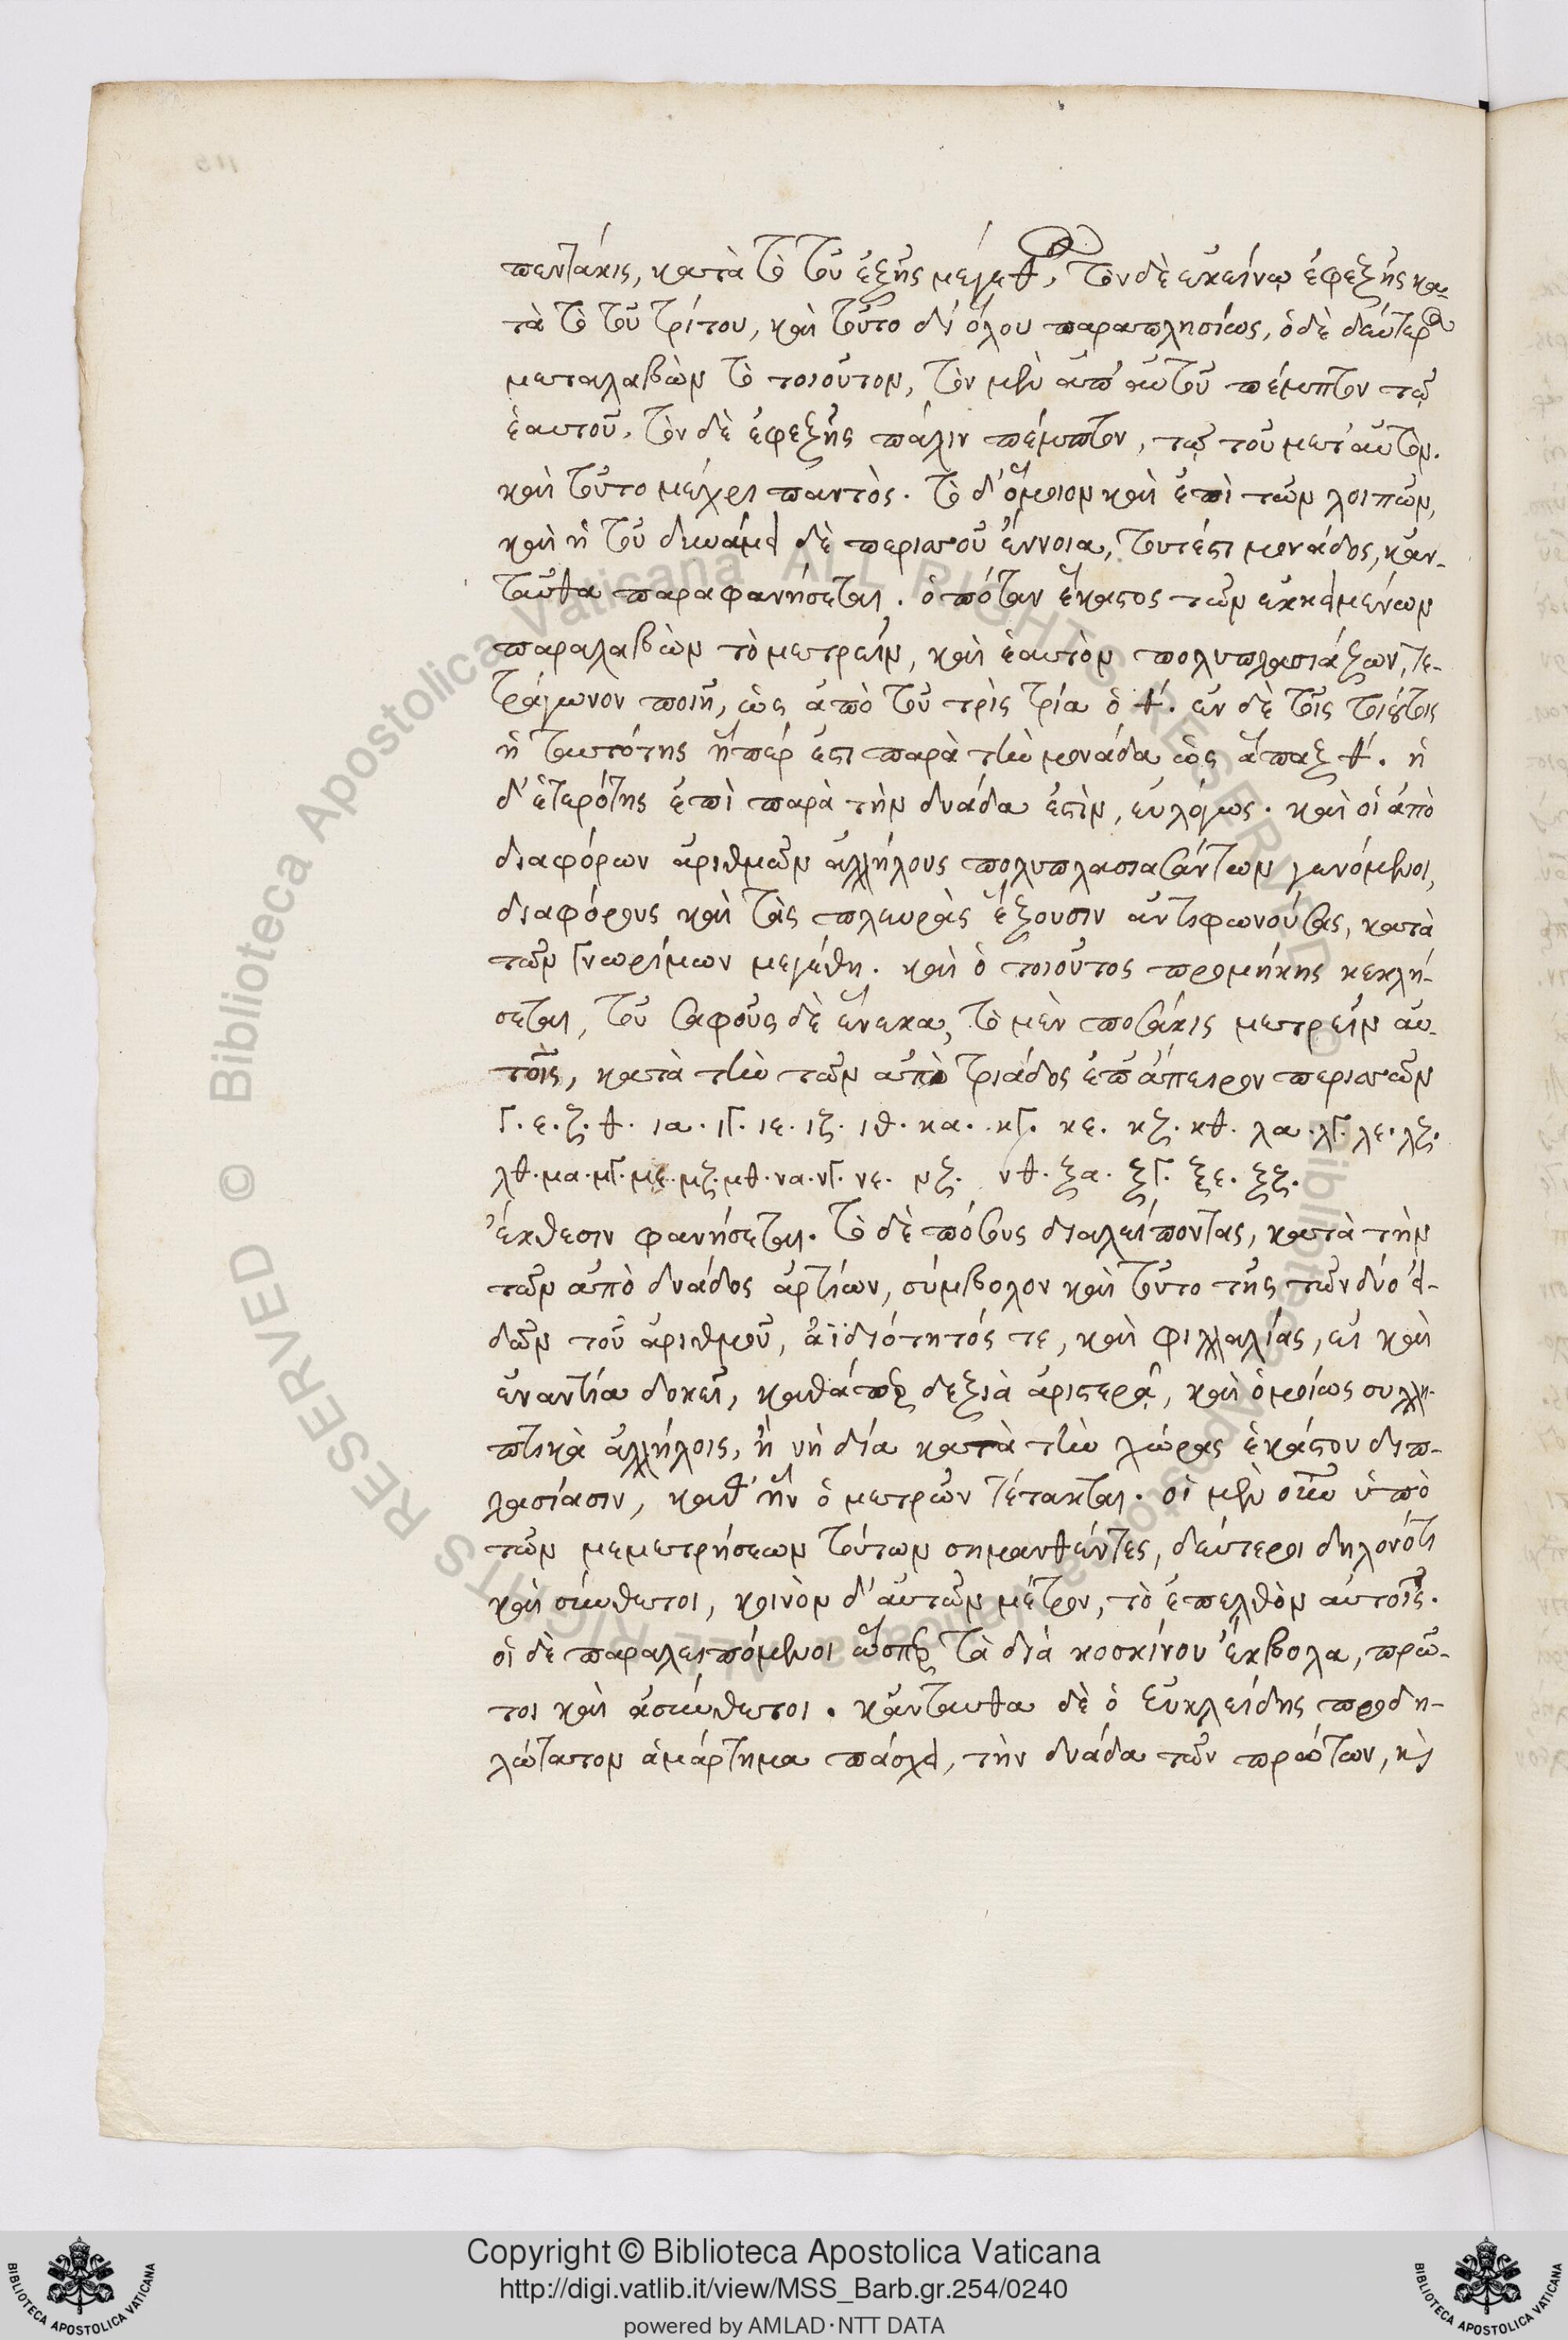 πεντάκις, κατὰ τὸ τοῦ ἑξῆς μέγεθος, τὸν δὲ ἐκείνῳ ἐφεξῆς κα-
τὰ τὸ τοῦ τρίτου, καὶ τοῦτο δι' ὅλου παραπλησίως, ὁ δὲ δεύτερος
μεταλαβὼν τὸ τοιοῦτον, τὸν μὲν ἀπ' αὐτοῦ πέμπτον τῷ
ἑαυτοῦ, τὸν δὲ ἐφεξῆς πάλιν πέμπτον, τῷ τοῦ μετ' αὐτὸν.
καὶ τοῦτο μέχρι παντὸς. τὸ δ' ὅμοιον καὶ ἐπὶ τῶν λοιπῶν,
καὶ ἡ τοῦ δυνάμει δὲ περισσοῦ ἔννοια, τουτέστι μονάδος, κἀν-
ταῦθα παραφανήσεται. ὁπόταν ἕκαστος τῶν ἐκκειμένων
παραλαβὼν τὸ μετρεῖν, καὶ ἑαυτὸν πολυπλασιάζων, τε-
τράγωνον ποιῇ, ὡς ἀπὸ τοῦ τρὶς τρία ὁ θ΄. ἐν δὲ τοῖς τοιούτοις
ἡ ταυτότης ἥπερ ἐστι παρὰ τὴν μονάδα ὡς ἅπαξ θ΄. ἡ
δ' ἑτερότης ἐπὶ παρὰ τὴν δυάδα ἐστὶν, εὐλόγως. καὶ οἱ ἀπὸ
διαφόρων ἀριθμῶν ἀλλήλους πολυπλασιασάντων γενόμενοι,
διαφόρους καὶ τὰς πλευρὰς ἕξουσιν ἀντιφωνούσας, κατὰ
τῶν γνωρίμων μεγέθη. καὶ ὁ τοιοῦτος προμήκης κεκλή-
σεται, τοῦ σαφοῦς δὲ ἕνεκα, τὸ μὲν ποσάκις μετρεῖν αὐ-
τοῖς, κατὰ τὴν τῶν ἀπὸ τριάδος ἐπ' ἄπειρον περισσῶν
γ. ε. ζ. θ. ια. ιγ. ιε. ιζ. ιθ. κα. κγ. κε. κζ. κθ. λα. λγ. λε. λζ.
λθ. μα. μγ. με. μζ. μθ. να. νγ. νε. νζ. νθ. ξα. ξγ. ξε. ξζ.
ἔκθεσιν φανήσεται. τὸ δὲ πόσους διαλείποντας, κατὰ τὴν
τῶν ἀπὸ δυάδος ἀρτίων, σύμβολον καὶ τοῦτο τῆς τῶν δύο εἰ-
δῶν τοῦ ἀριθμοῦ, ἀϊδιότητός τε, καὶ φιλλαλίας, εἰ καὶ
ἐναντία δοκεῖ, καθάπερ δεξιὰ ἀριστερᾷ, καὶ ὁμοίως συλλη-
πτικὰ ἀλλήλοις, ἢ νὴ δία κατὰ τὴν χώρας ἑκάστου διπ-
λασίασιν, καθ' ἣν ὁ μετρῶν τέτακται. οἱ μὲν οὖν ὑπὸ
τῶν μεμετρήσεων τούτων σημανθέντες, δεύτεροι δηλονότι
καὶ σύνθετοι, κοινὸν δ' αὐτῶν μέτρον, τὸ ἐπελθὸν αὐτοῖς.
οἱ δὲ παραλειπόμενοι ὥσπερ τὰ διά κοσκίνου ἔκβολα, πρῶ-
τοι καὶ ἀσύνθετοι. κἀνταυθα δὲ ὁ Εὐκλείδης προδη-
λώτατον ἁμάρτημα πάσχει, τὴν δυάδα τῶν πρώτων, κὶ
Copyright © Biblioteca Apostolica Vaticana
http://digi.vatlib.it/view/MSS_Barb.gr.254/0240
powered by AMLAD·NTT DATA